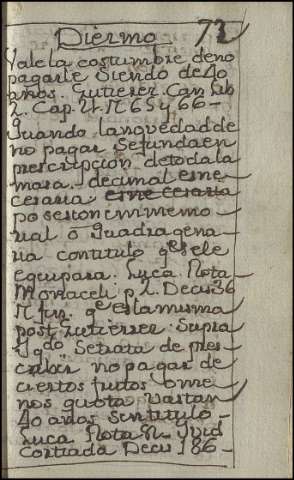 Diezmo 72
Vale la costumbre de no
pagarle siendo de 40
años. Gutierrez. Can. Lib
2. Cap. 21. N. 65 y 66 –
Quando la novedad de
no pagar se funda en
prescripcion de toda la
masa decimal es ne
cesaria es ne cesaria
posesion inmemo
rial ó quadragena
ria con titulo qe se le
equipara. Luca. Rota
p. 2. Decis 36
N. fin. qe esta misma
post. Gutierrez. Supra
Y qdo. Se trata de pres
cribir no pagar de
ciertos frutos ó me
nos quota bastan
40 años sin titulo –
Luca Rota
Decis 186 –